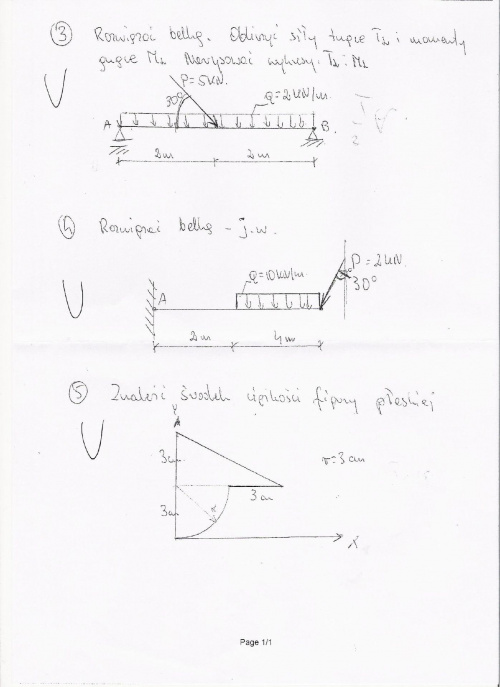 ③ Rozwiązać belkę. Obliczyć siły tnące Tx i momenty
gnące Mx Narysować wykresy Tx i Mx
P=5kN.
30°
Q=2kN/m.
A
B
2m
2m
④ Rozwiązać belkę - j.w.
P=2kN.
30°
Q=10kN/m.
A
2m
4m
⑤ Znaleść środek ciężkości figury płaskiej
Y
3cm
r=3cm
3cm
3cm
r
X
Page 1/1